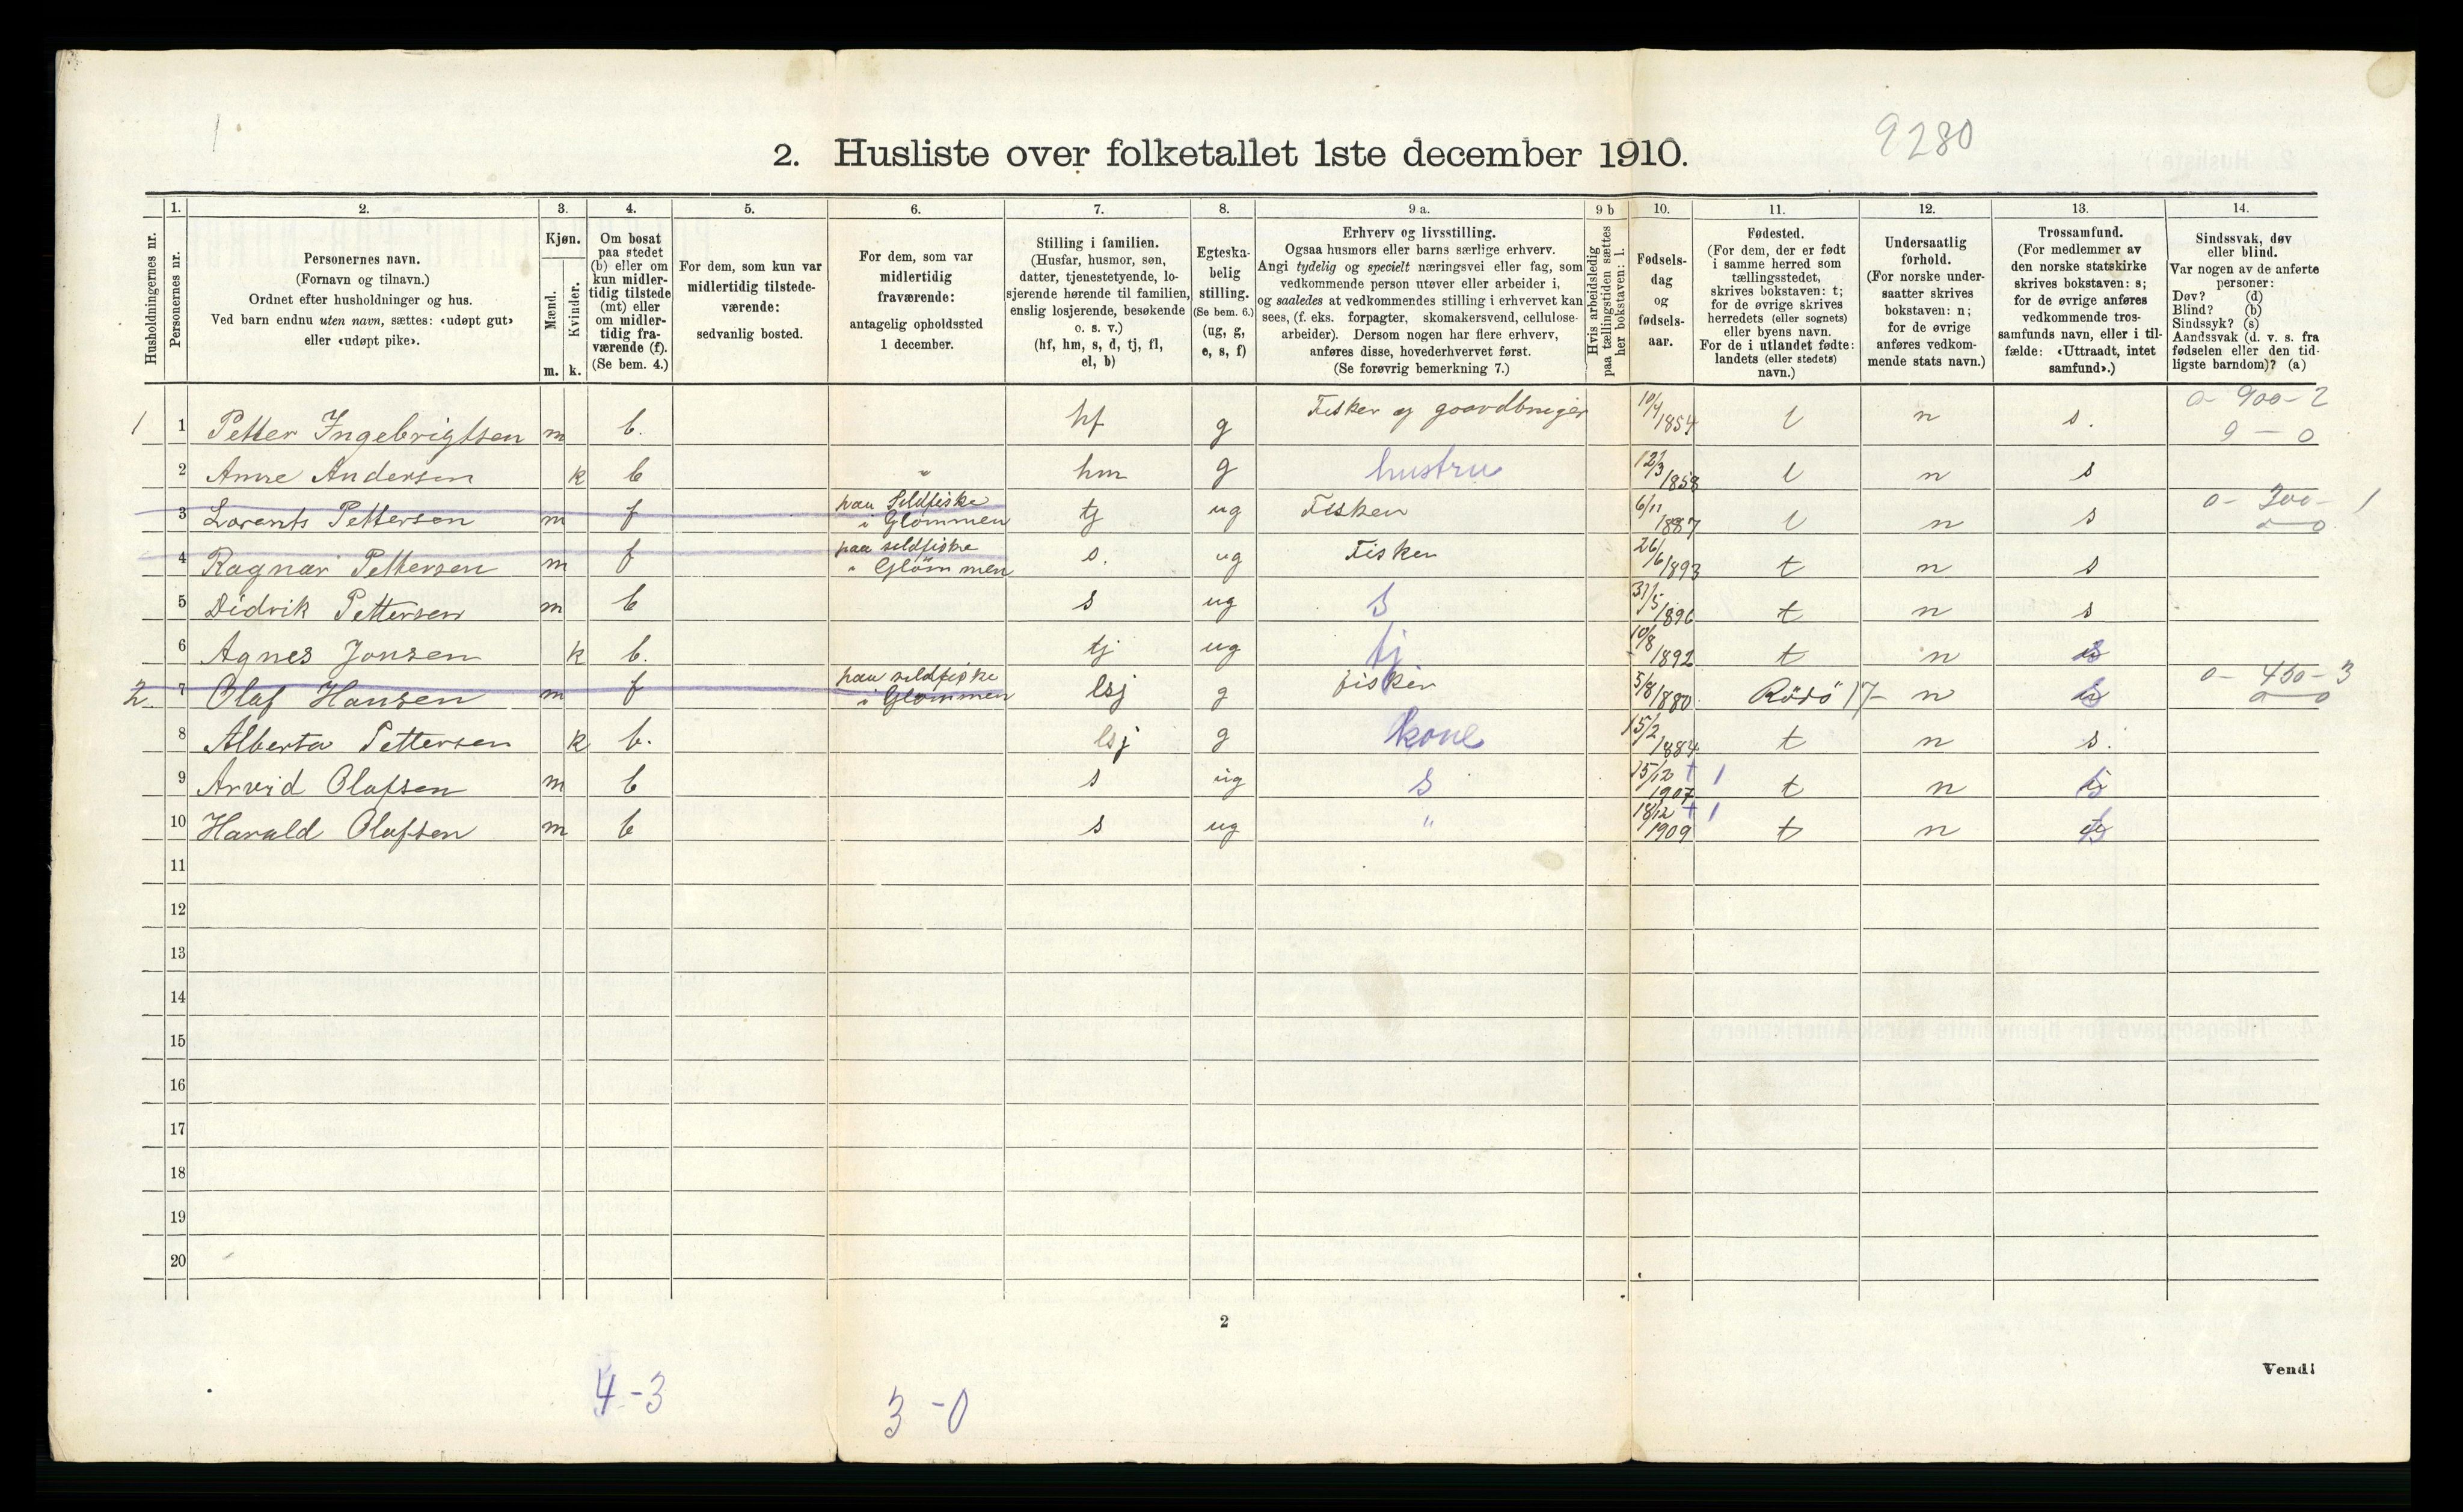 1
9280
2. Husliste over folketallet 1ste december 1910.
Husholdningernes nr.
1.
Personernes nr.
2.
Personernes navn.
(Fornavn og tilnavn.)
Ordnet efter husholdninger og hus.
Ved barn endnu uten navn, sættes: «udøpt gut»
eller «udøpt pike».
3.
Kjøn.
Mænd.
Kvinder.
m. k.
4.
Om bosat
paa stedet
(b) eller om
kun midler-
tidig tilstede
(mt) eller
om midler-
tidig fra-
værende (f).
(Se bem. 4.)
5.
For dem, som kun var
midlertidig tilstede-
værende:
sedvanlig bosted.
6.
For dem, som var
midlertidig
fraværende:
antagelig opholdssted
1 december.
7.
Stilling i familien.
(Husfar, husmor, søn,
datter, tjenestetyende, lo-
sjerende hørende til familien,
enslig losjerende, besøkende
o. s. v.)
(hf, hm, s, d, tj, fl,
el, b)
8.
Egteska-
belig
stilling.
(Se bem. 6.)
(ug, g,
e, s, f)
9 a.
Erhverv og livsstilling.
Ogsaa husmors eller barns særlige erhverv.
Angi tydelig og specielt næringsvei eller fag, som
vedkommende person utøver eller arbeider i,
og saaledes at vedkommendes stilling i erhvervet kan
sees, (f. eks. forpagter, skomakersvend, cellulose-
arbeider). Dersom nogen har flere erhverv,
anføres disse, hovederhvervet først.
(Se forøvrig bemerkning 7.)
9 b
Hvis arbeidsledig
paa tællingstiden sættes
her bokstaven: l.
10.
Fødsels-
dag
og
fødsels-
aar.
11.
Fødested.
(For dem, der er født
i samme herred som
tællingsstedet,
skrives bokstaven: t;
for de øvrige skrives
herredets (eller sognets)
eller byens navn.
For de i utlandet fødte:
landets (eller stedets)
navn.)
12.
Undersaatlig
forhold.
(For norske under-
saatter skrives
bokstaven: n;
for de øvrige
anføres vedkom-
mende stats navn.)
13.
Trossamfund.
(For medlemmer av
den norske statskirke
skrives bokstaven: s;
for de øvrige anføres
vedkommende tros-
samfunds navn, eller i til-
fælde: «Uttraadt, intet
samfund».)
14.
Sindssvak, døv
eller blind.
Var nogen av de anførte
personer:
Døv? (d)
Blind? (b)
Sindssyk? (s)
Aandssvak (d. v. s. fra
fødselen eller den tid-
ligste barndom)? (a)
1 1 Petter Ingebrigtsen m b. hf g Fisker og gaardbruger 10/4 1854 t n s. 0-900-2
9-0
2 Anne Andersen k b " hm g hustru 12/3 1858 t n s
3 Lorents Pettersen m f paa Sildfiske i Glommen tj ug Fisker 6/11 1887 t n s 0-300-1
0-0
4 Ragnar Pettersen m f paa sildfiske i Glommen s. ug Fisker 26/6 1893 t n s
5 Didrik Pettersen m b s ug s 31/5 1896 t n s
6 Agnes Jonsen k b. tj ug tj 10/8 1892 t n s
2 7 Olaf Hansen m f paa sildfiske i Glommen lsj g fisker 5/8 1880 Rödö 17- n s 0-450-3
0-0
8 Alberta Pettersen k b. lsj g kone 15/2 1884 t n s.
9 Arvid Olafsen m b s ug s 15/12 1907 + 1 t n s
10 Harald Olafsen m b s ug " 18/12 1909 + 1 t n s
11
12
13
14
15
16
17
18
19
20
2
Vend!
4-3
3-0